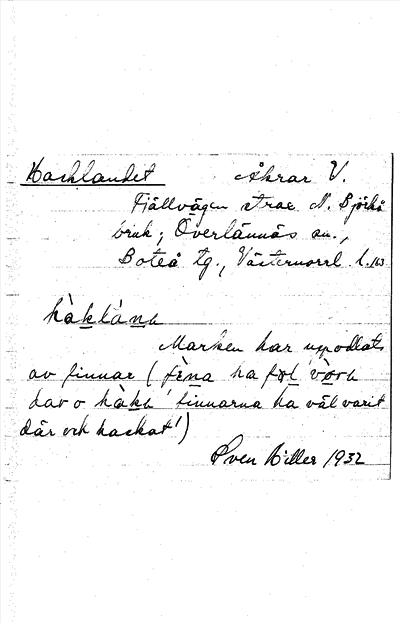 Hacklandet Åkrar V.
Fjällvägen strax N. Björkå
bruk; Överlännäs sn.,
Boteå tg., Västernorrl. l.
hàklàna
Marken har uppodlats
av finnar (fèna ha fol vòra
dar o hàka 'finnarna ha väl varit
där och hackat')
Sven Hiller 1932